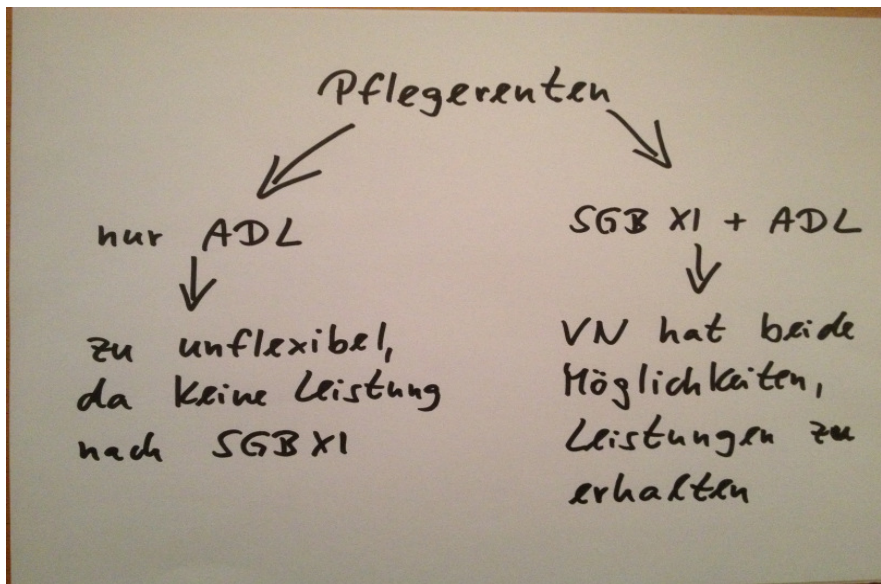 Pflegerenten
nur ADL
zu unflexibel,
da keine Leistung
nach SGB XI
SGB XI + ADL
VN hat beide
Möglichkeiten,
Leistungen zu
erhalten